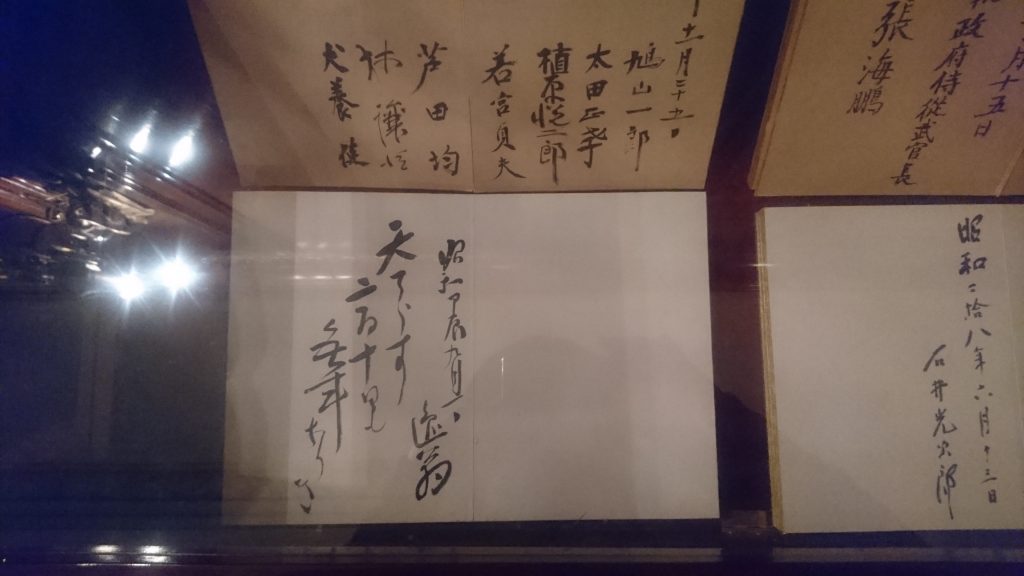 月十五日
政府侍従武官長
張海鵬
十一月二十五日
鳩山一郎
太田正孝
植原悦二郎
若宮貞夫
芦田均
林譲治
犬養健
昭和二拾八年六月十三日
石井光次郎
昭和甲辰九月一日
翁
天
二百十